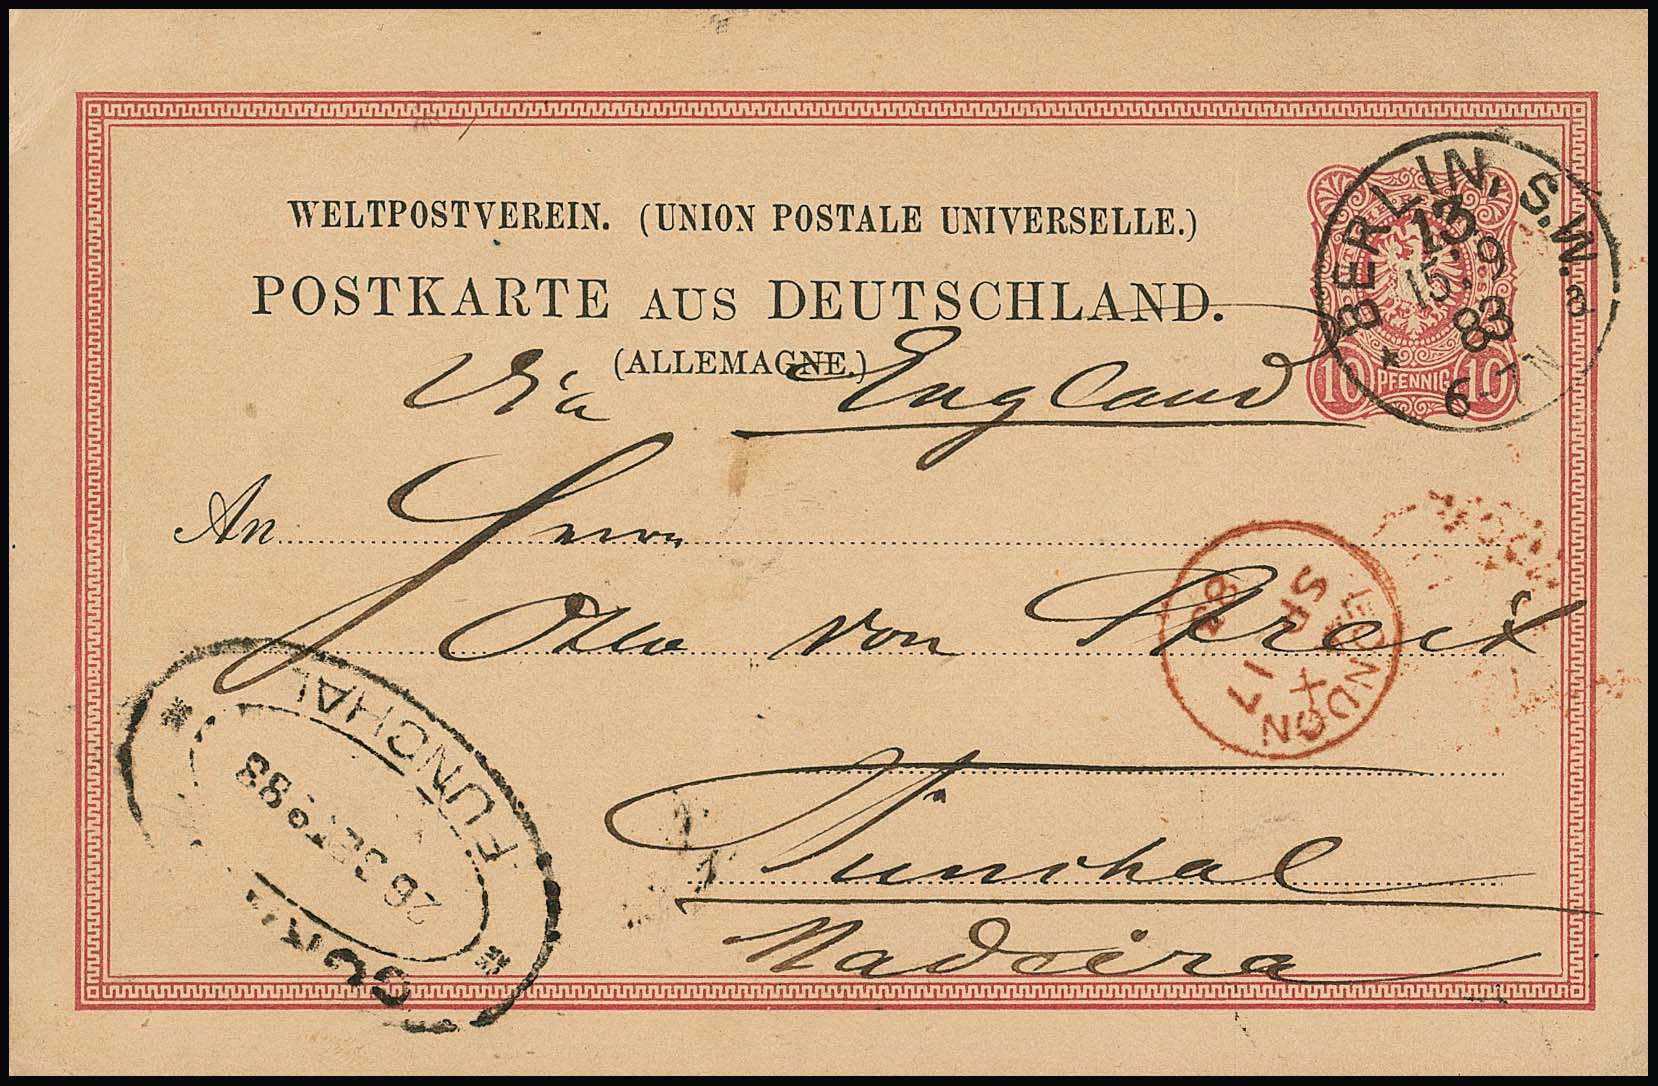 WELTPOSTVEREIN. (UNION POSTALE UNIVERSELLE.)
POSTKARTE AUS DEUTSCHLAND.
(ALLEMAGNE.)
Via England
An Herrn
Otto von Streit
Funchal
Madeira
10 PFENNIG 10
BERLIN, S.W.
13
15.9
83
6-7 N
a
LONDON
X
SP 17
83
FUNCHAL
26 SETº 83